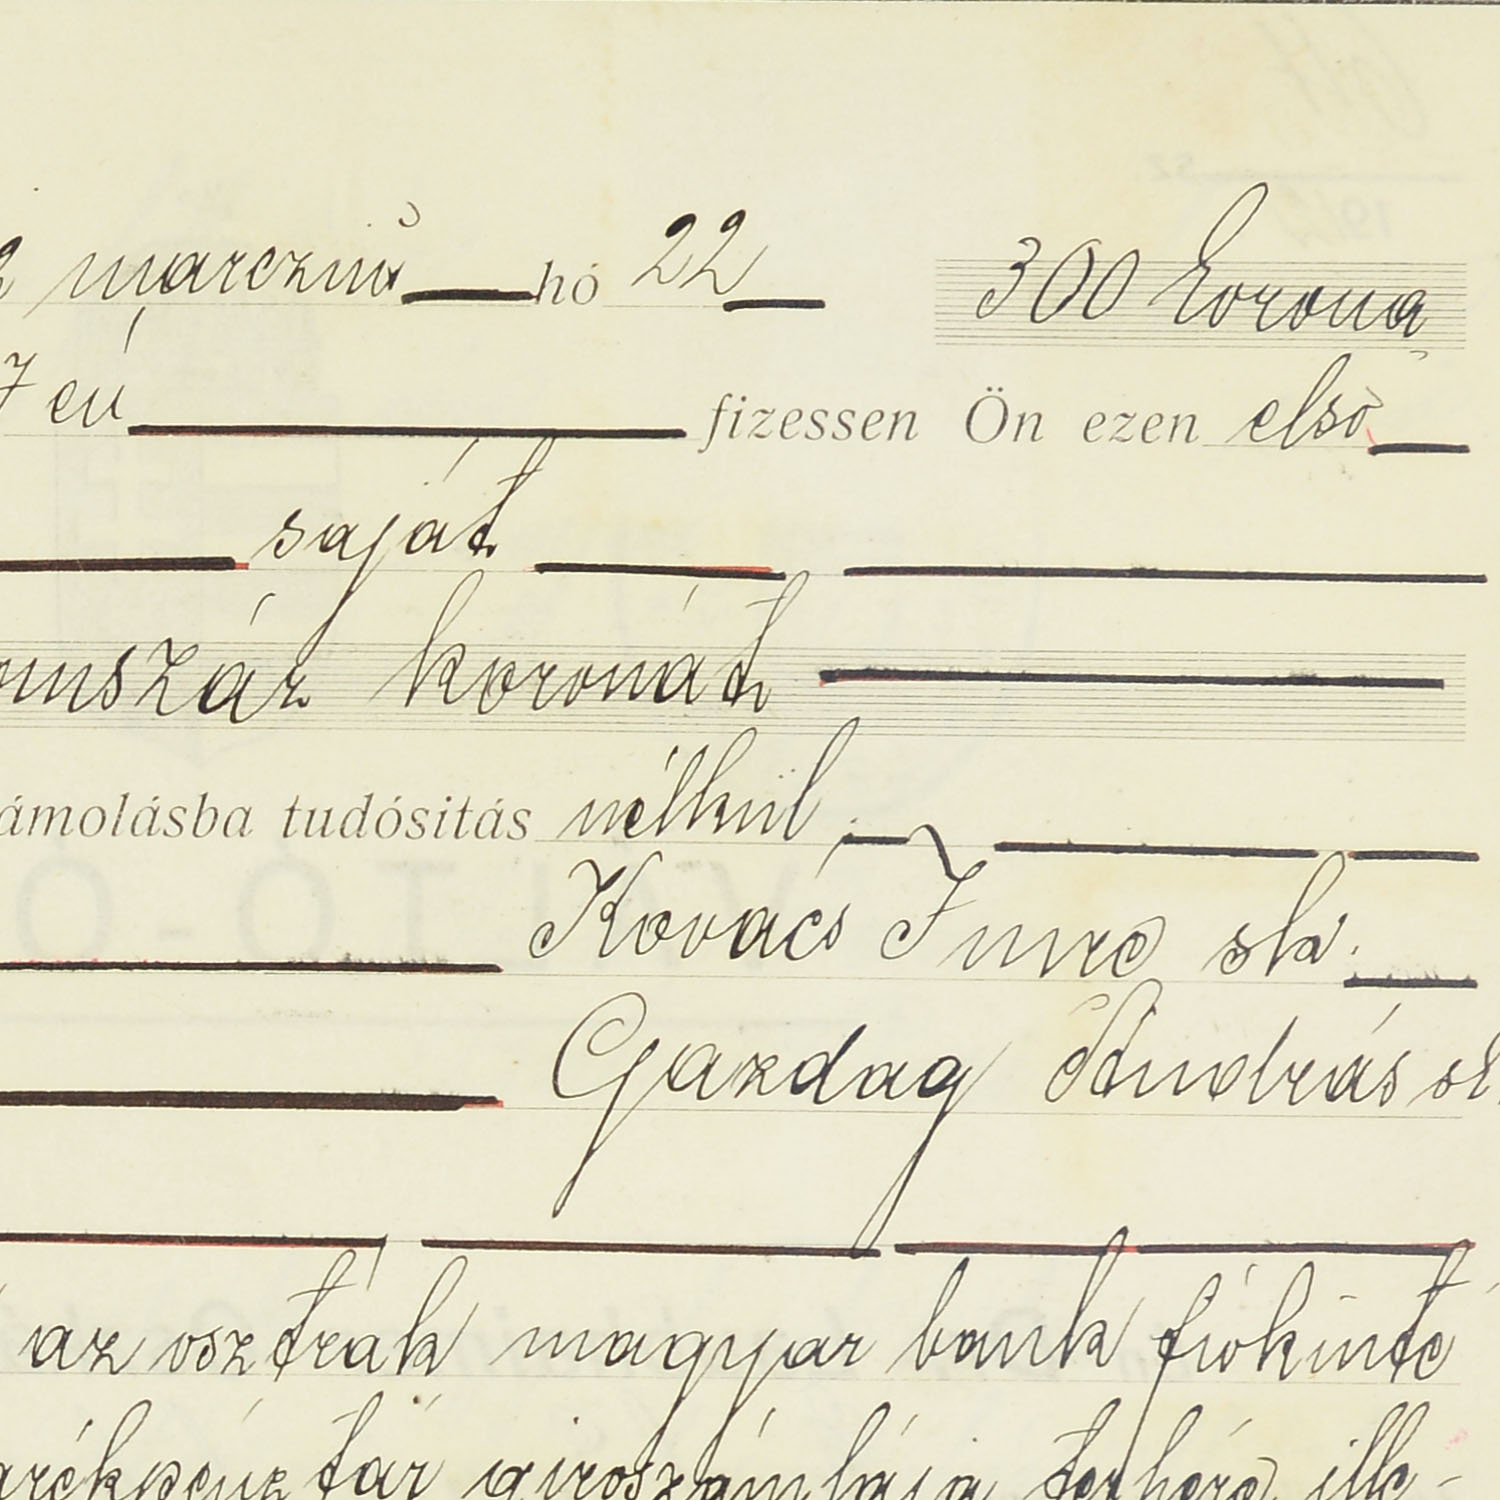 2 marczius hó 22 300 korona
7 én fizessen Ön ezen első
saját
omszáz koronát
ámolásba tudósitás nélkül.
Kovács Imre sk.
Gazdag András sk
az osztrák magyar bank fiókinté
arékpénztár giroszámlája terhére ille-